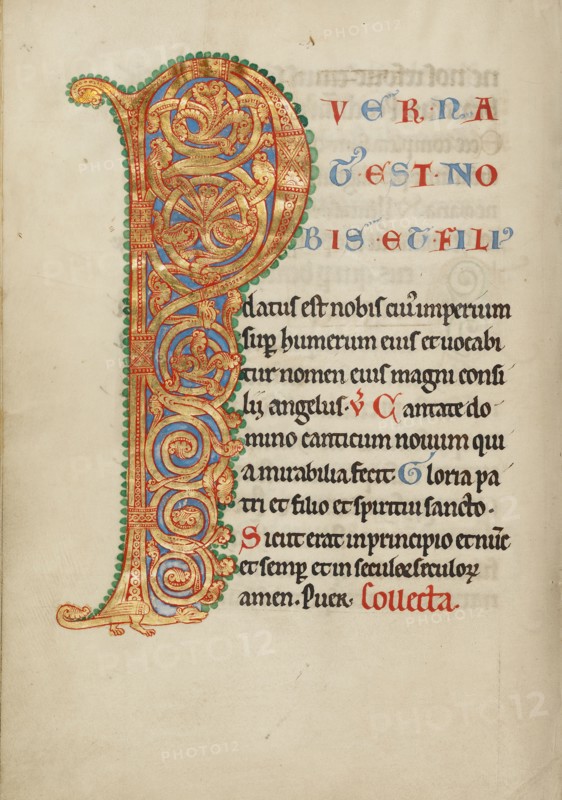 PVER·NA
T·EST·NO
BIS·ET·FILIꝰ
datus est nobis cui᷒ imperium
sup humerum eius et uocabi
tur nomen eius magni consi
lij angelus· V̉ Cantate do
mino canticum nouum qui
a mirabilia fecit· Gloria pa
tri et filio et spiritui sancto·
Sicut erat in principio et nūc
et semp et in seculoe seculoꝝ
amen· Puer· Collecta·
PHOTO12